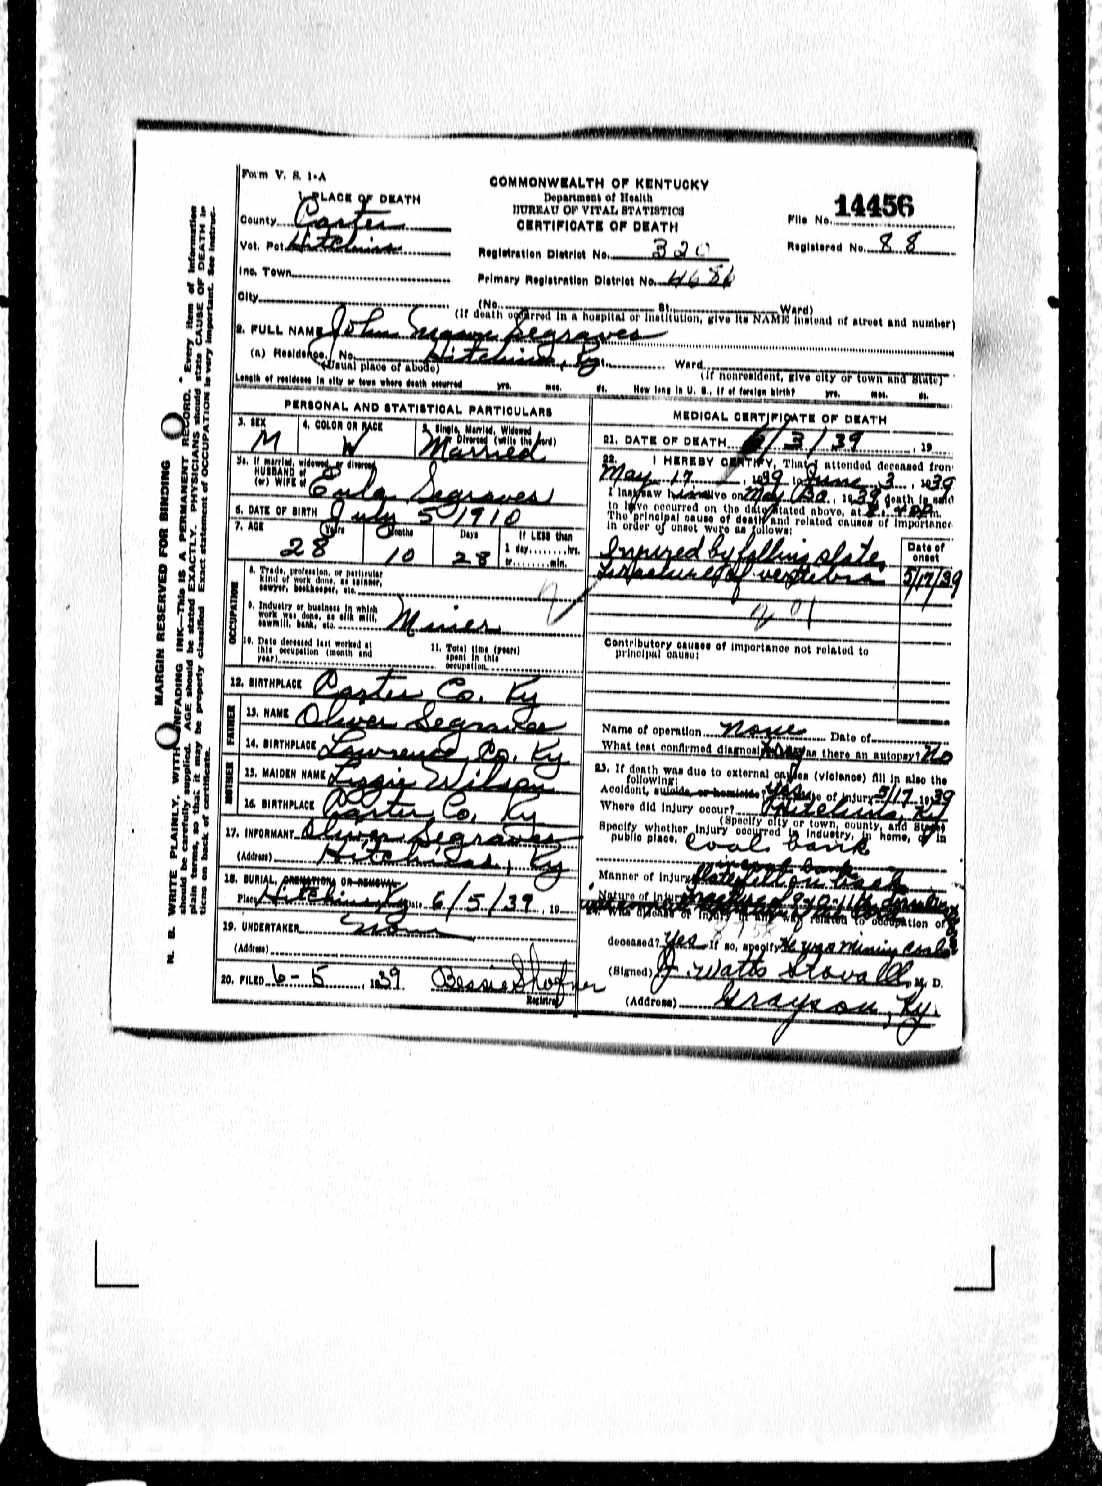 Form V. S. 1-A
COMMONWEALTH OF KENTUCKY
Department of Health
BUREAU OF VITAL STATISTICS
CERTIFICATE OF DEATH
File No. 14456
Registered No. 88
1. PLACE OF DEATH
County Carter
Vot. Pct. Hitchins
Inc. Town
City
Registration District No. 320
Primary Registration District No. 4686
(No. St. Ward)
(If death occurred in a hospital or institution, give its NAME instead of street and number)
2. FULL NAME John Segraves
(a) Residence, No. Hitchins, Ky St. Ward
(Usual place of abode) (If nonresident, give city or town and State)
Length of residence in city or town where death occurred yrs. mos. ds. How long in U. S., if of foreign birth? yrs. mos. ds.
PERSONAL AND STATISTICAL PARTICULARS
3. SEX M
4. COLOR OR RACE W
5. Single, Married, Widowed or Divorced (write the word) Married
5a. If married, widowed or divorced
HUSBAND of
(or) WIFE of Eula Segraves
6. DATE OF BIRTH July 5 1910
7. AGE Years Months Days If LESS than
28 10 28 1 day, hrs.
or min.
OCCUPATION
8. Trade, profession, or particular
kind of work done, as spinner,
sawyer, bookkeeper, etc.
9. Industry or business in which
work was done, as silk mill,
sawmill, bank, etc. Miner
10. Date deceased last worked at
this occupation (month and
year)
11. Total time (years)
spent in this
occupation
12. BIRTHPLACE Carter Co. Ky
FATHER
13. NAME Oliver Segraves
14. BIRTHPLACE Lawrence Co. Ky
MOTHER
15. MAIDEN NAME Lizzie Wilson
16. BIRTHPLACE Carter Co. Ky
17. INFORMANT Oliver Segraves
(Address) Hitchins, Ky
18. BURIAL, CREMATION OR REMOVAL
Place Hitchins Ky Date 6/5/39, 19
19. UNDERTAKER None
(Address)
20. FILED 6-5, 1939 Bessie Shofner
Registrar
MEDICAL CERTIFICATE OF DEATH
21. DATE OF DEATH 6/3/39, 19
22. I HEREBY CERTIFY, That I attended deceased from
May 17, 1939 to June 3, 1939
I last saw him alive on May 1939 death is said
to have occurred on the date stated above, at m.
The principal cause of death and related causes of importance
in order of onset were as follows:
Date of
onset
Injured by falling slate,
fracture of vertebra 5/17/39
201
Contributory causes of importance not related to
principal cause:
Name of operation None Date of
What test confirmed diagnosis? Xray Was there an autopsy? No
23. If death was due to external causes (violence) fill in also the
following:
Accident, suicide or homicide? yes Date of injury 5/17 1939
Where did injury occur? Hitchins, Ky
(Specify city or town, county, and State)
Specify whether injury occurred in industry, in home, or in
public place. Coal bank
in coal bank
Manner of injury Slate fell on back
Nature of injury
24. Was disease or injury in any way related to occupation of
deceased? Yes If so, specify He was mining coal
(Signed) J. Watts Stovall, M. D.
(Address) Grayson, Ky.
MARGIN RESERVED FOR BINDING
N. B. WRITE PLAINLY, WITH UNFADING INK—THIS IS A PERMANENT RECORD. Every item of information
should be carefully supplied. AGE should be stated EXACTLY. PHYSICIANS should state CAUSE OF DEATH in
plain terms, so that it may be properly classified. Exact statement of OCCUPATION is very important. See instructions on back of certificate.